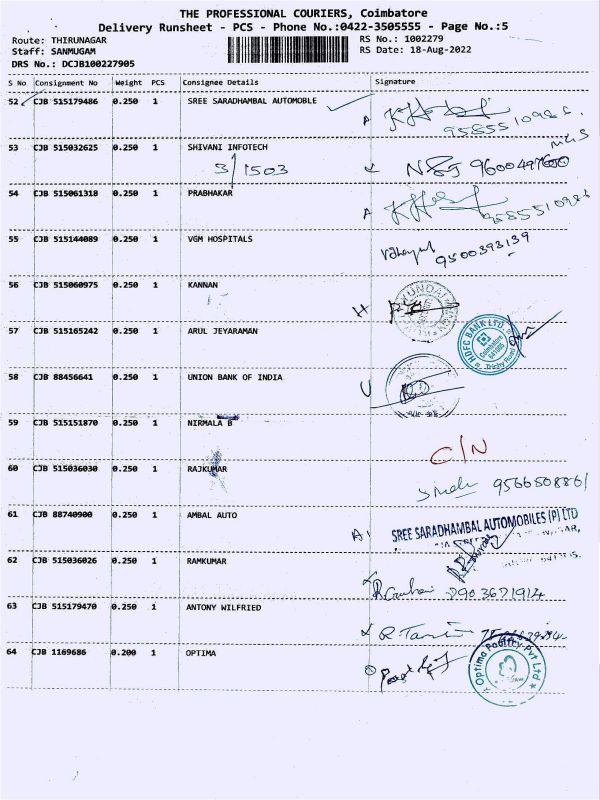 THE PROFESSIONAL COURIERS, Coimbatore
Delivery Runsheet - PCS - Phone No.:0422-3505555 - Page No.:5
Route: THIRUNAGAR
RS No.: 1002279
Staff: SANMUGAM
RS Date: 18-Aug-2022
DRS No.: DCJB100227905
S No Consignment No Weight PCS Consignee Details Signature
52 CJB 515179486 0.250 1 SREE SARADHAMBAL AUTOMOBLE
53 CJB 515032625 0.250 1 SHIVANI INFOTECH
3/1503
54 CJB 515061318 0.250 1 PRABHAKAR
9585510986
55 CJB 515144089 0.250 1 VGM HOSPITALS
9500393139
56 CJB 515060975 0.250 1 KANNAN
57 CJB 515165242 0.250 1 ARUL JEYARAMAN
HDFC BANK LTD
Coimbatore
Trichy Road
58 CJB 88456641 0.250 1 UNION BANK OF INDIA
59 CJB 515151870 0.250 1 NIRMALA B
C/N
60 CJB 515036030 0.250 1 RAJKUMAR
9566508861
61 CJB 88740900 0.250 1 AMBAL AUTO
SREE SARADHAMBAL AUTOMOBILES (P) LTD
62 CJB 515036026 0.250 1 RAMKUMAR
63 CJB 515179470 0.250 1 ANTONY WILFRIED
64 CJB 1169686 0.200 1 OPTIMA
Optima Poultry Pvt Ltd